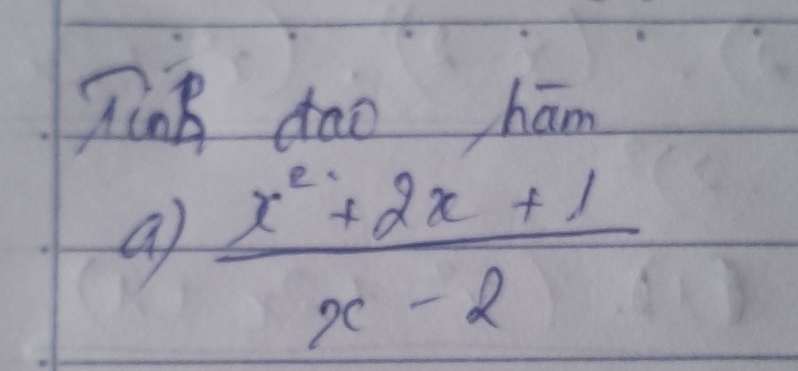 Tính đạo hàm
a) \frac{x^2 + 2x + 1}{x - 2}